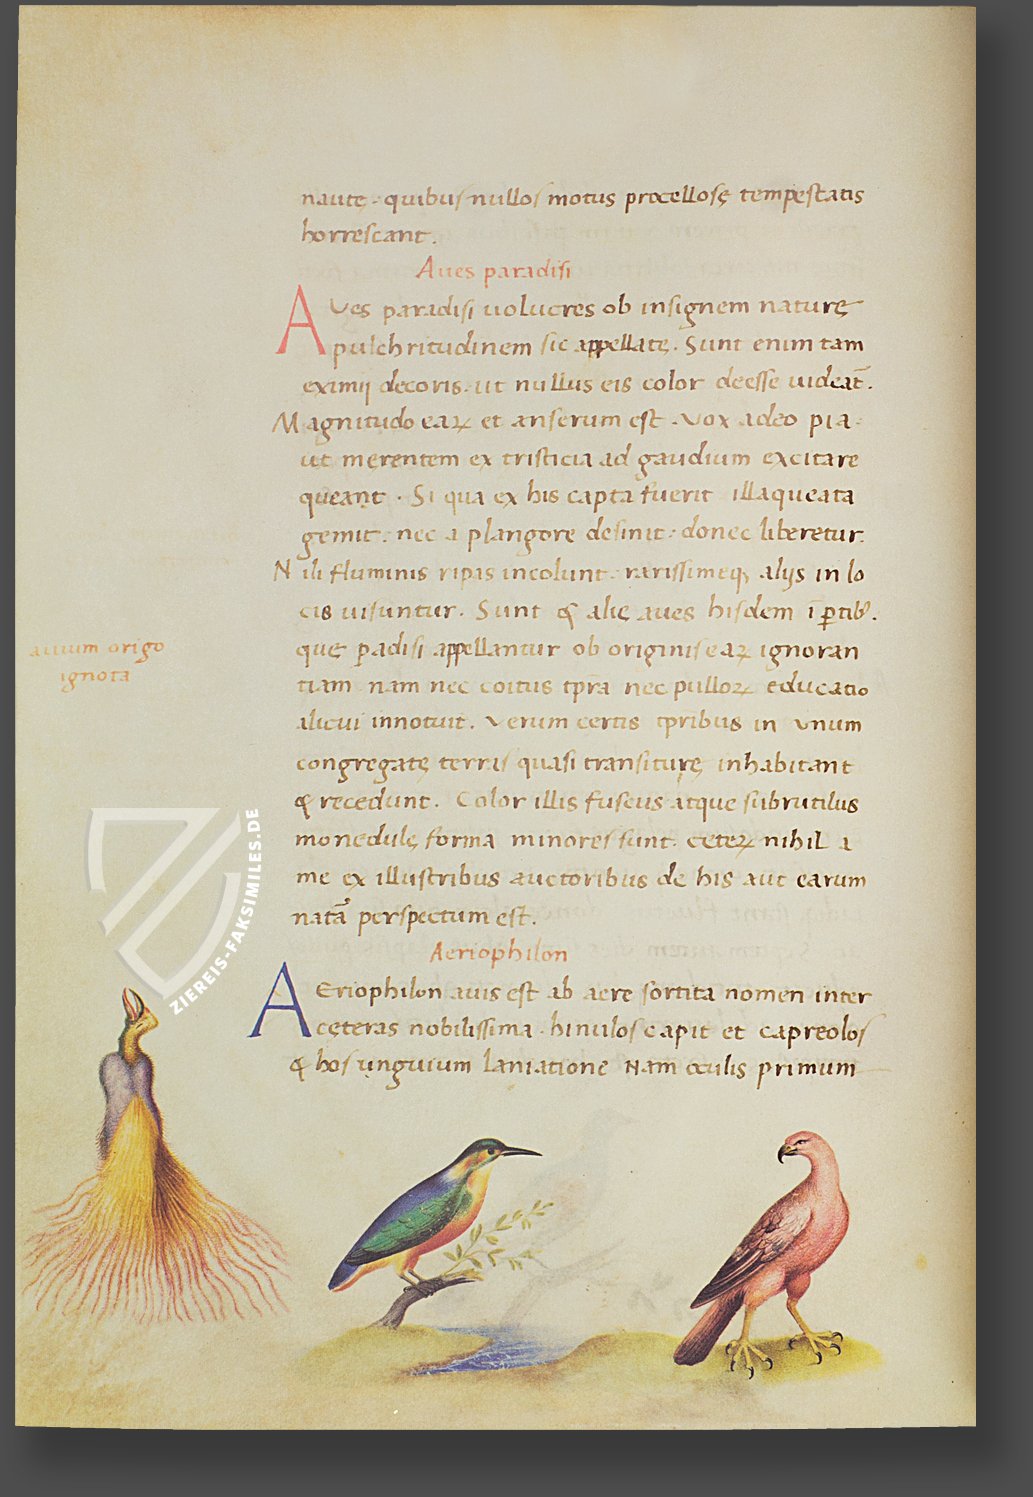 nautę · quibus nullos motus procellosę tempestatis
horrescant.
Aues paradisi
AVes paradisi uolucres ob insignem naturę
pulchritudinem sic appellatę. Sunt enim tam
eximij decoris. ut nullus eis color deesse uideat̄.
Magnitudo eaꝝ et anserum est. Vox adeo pia.
ut merentem ex tristicia ad gaudium excitare
queant. Si qua ex his capta fuerit illaqueata
gemit: nec a plangore desinit: donec liberetur.
Nili fluminis ripas incolunt. rarissimeqꝫ alijs in lo
cis uisuntur. Sunt & alię aues hisdem ī ꝑtibꝰ.
quę ꝑadisi appellantur ob originis eaꝝ ignoran
tiam nam nec coitus tp̄ra nec pulloꝝ educatio
alicui innotuit. Verum certis tp̄ribus in vnum
congregatę terris quasi transiturę inhabitant
& recedunt. Color illis fuscus atque subrutilus
monedulę forma minores sunt. ceteꝝ nihil a
me ex illustribus auctoribus de his aut earum
natā perspectum est.
Aeriophilon
AEriophilon auis est ab aere sortita nomen inter
cęteras nobilissima. hinulos capit et capreolos
& hos unguium laniatione Nam oculis primum
auium origo
ignota
ZIEREIS-FAKSIMILES.DE